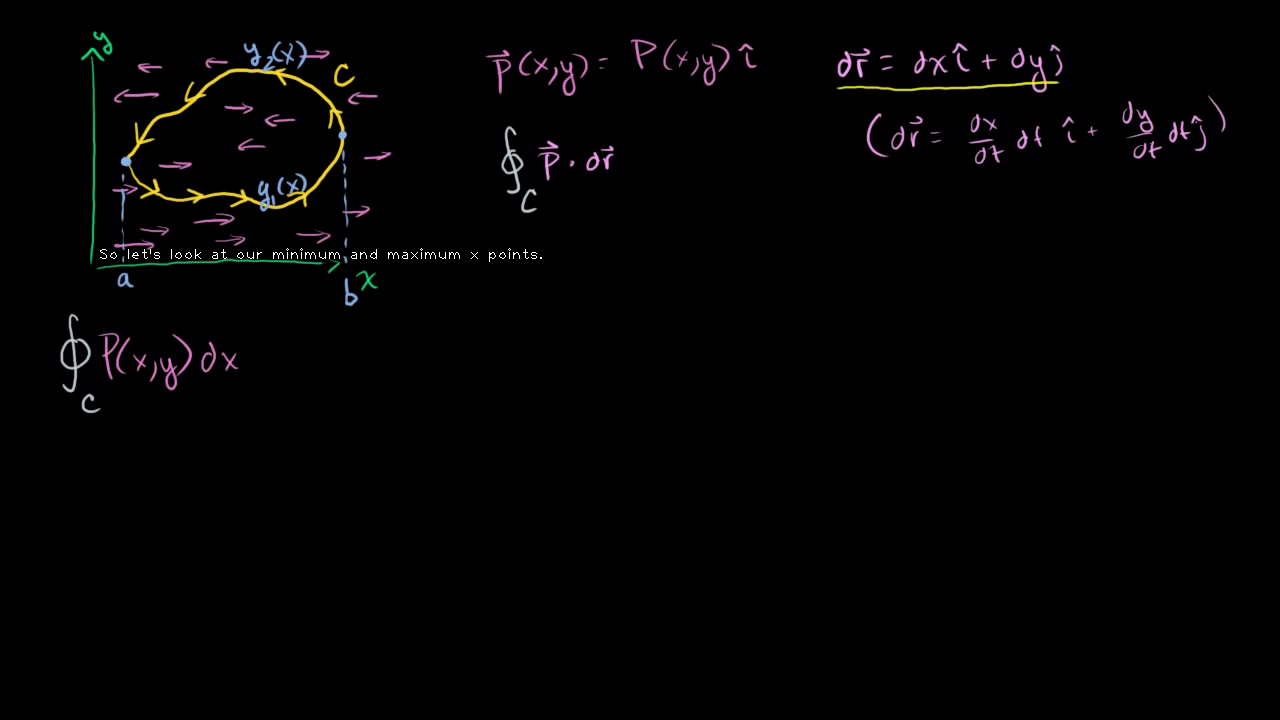 y
y₂(x)
C
y₁(x)
So let's look at our minimum and maximum x points.
a
b
x
∮_C P(x,y) dx
p⃗(x,y) = P(x,y) î
∮_C p⃗ · dr⃗
dr⃗ = dx î + dy ĵ
(dr⃗ = dx/dt dt î + dy/dt dt ĵ)